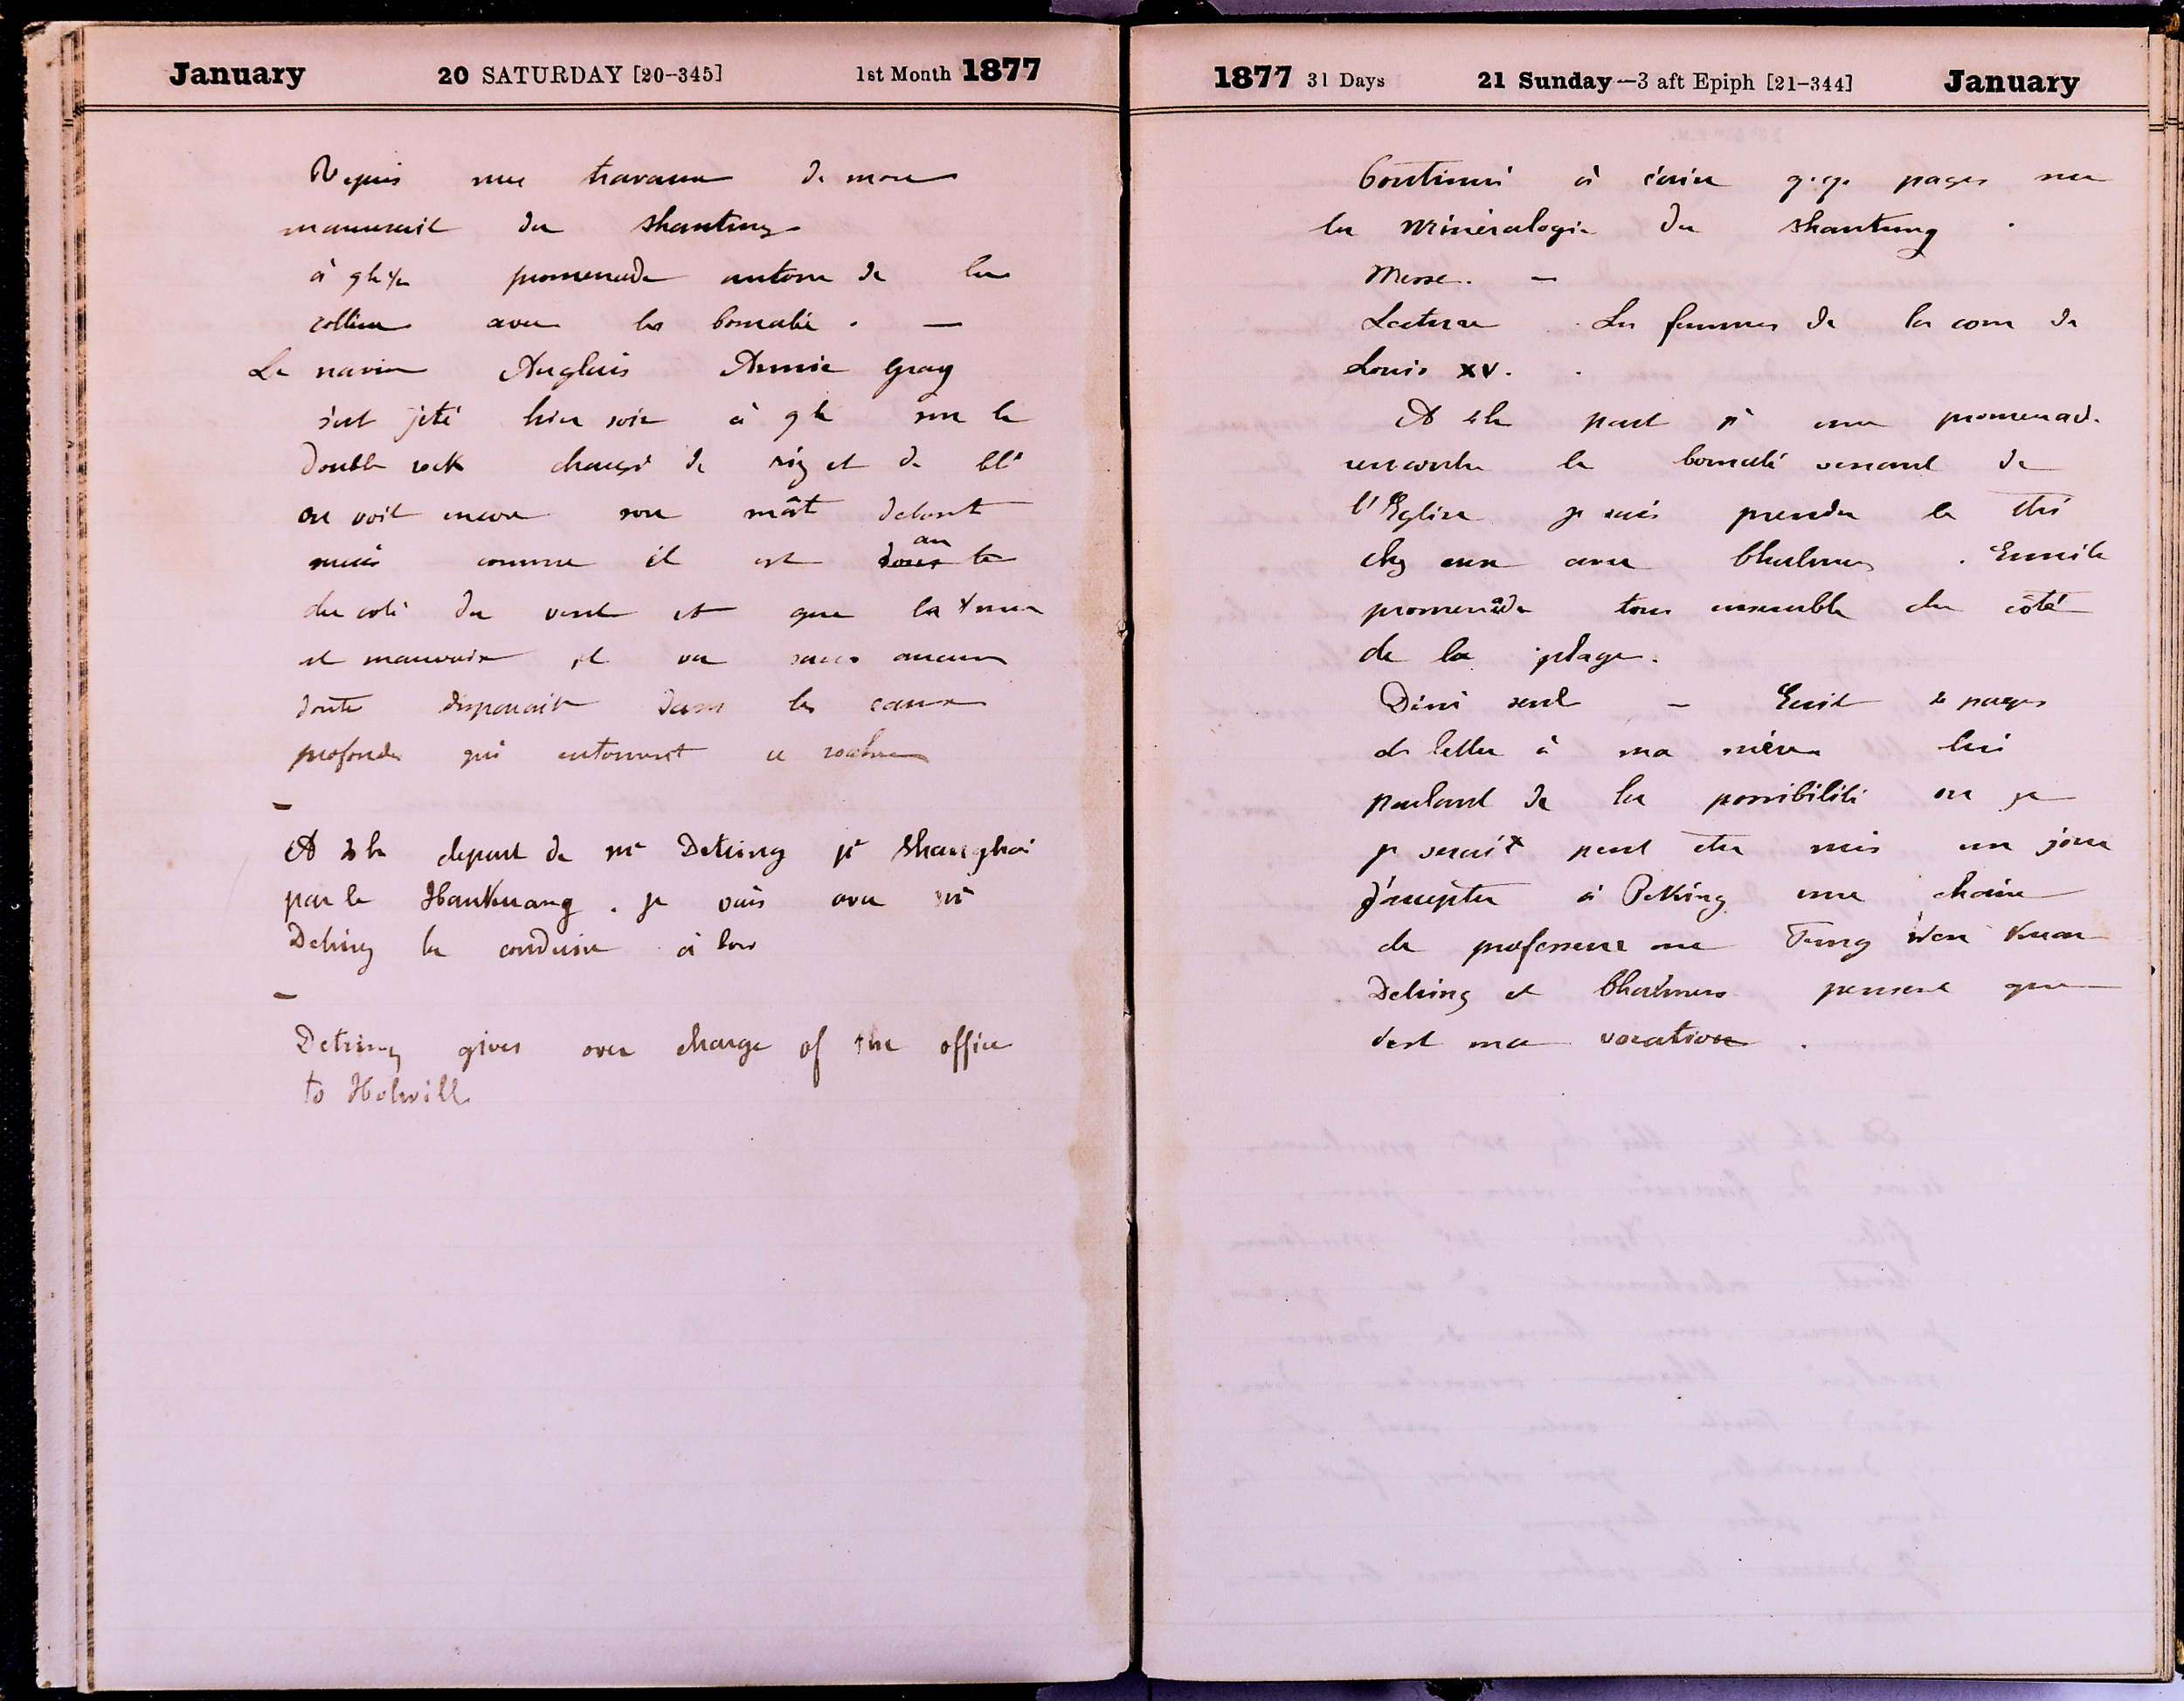 January 20 SATURDAY [20-345] 1st Month 1877
Repris mes travaux de mon
manuscrit du Shantung
à 9h ½ promenade autour de la
colline avec les Cornabé. —
Le navire Anglais Annie Gray
s'est jeté hier soir à 9h sur le
double rock chargé de riz et de blé
on voit encore son mât debout
mais comme il est au
du coté du vent et que la mer
est mauvaise il va sans aucun
doute disparaitre dans les eaux
profondes qui entourent ce rocher
—
A 2h depart de Mr Detring pr Shanghai
par le Hankwang. je vais avec Mr
Detring le conduire à bord
—
Detring gives over charge of the office
to Holwill
1877 31 Days 21 Sunday—3 aft Epiph [21-344] January
Continué à écrire q.q. pages sur
la Minéralogie du Shantung.
Messe. —
Lecture. Les femmes de la cour de
Louis XV.
A 4h part pr une promenade
rencontre le Cornabé venant de
l'Eglise je vais prendre le thé
chez eux avec Chalmers. Ensuite
promenade tous ensemble du côté
de la plage.
Diné seul — Ecrit 2 pages
de lettre à ma mère lui
parlant de la possibilité ou je
je serait peut etre mis un jour
d'accepter à Peking une chaire
de professeur au Tung Wen Kuan
Detring et Chalmers pensent que
c'est ma vocation.